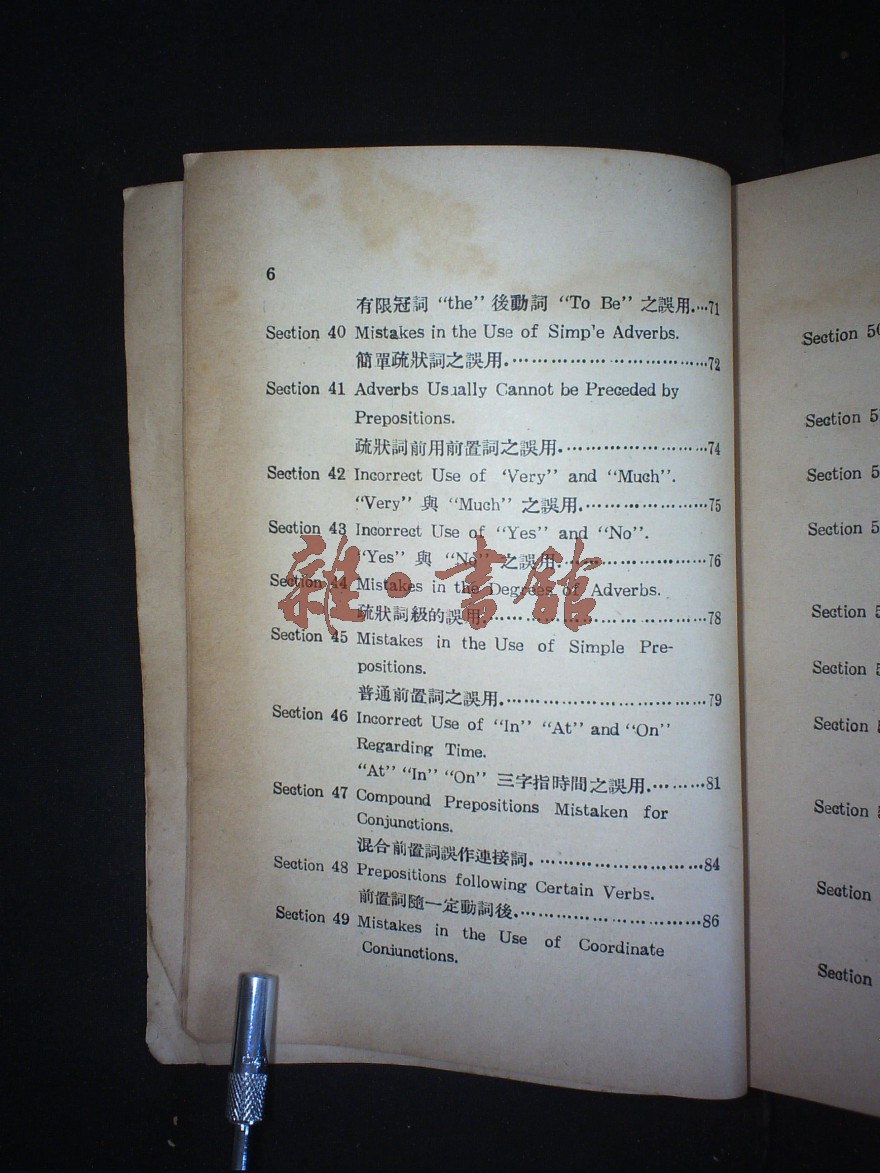 6
有限冠詞 “the” 後動詞 “To Be” 之誤用.…71
Section 40 Mistakes in the Use of Simp'e Adverbs.
簡單疏狀詞之誤用.……………………………72
Section 41 Adverbs Usually Cannot be Preceded by
Prepositions.
疏狀詞前用前置詞之誤用.……………………74
Section 42 Incorrect Use of ‘Very” and “Much”.
“Very” 與 “Much” 之誤用.…………………75
Section 43 Incorrect Use of “Yes” and “No”.
“Yes” 與 “No” 之誤用.……………………76
Section 44 Mistakes in the Degrees of Adverbs.
疏狀詞級的誤用.………………………………78
Section 45 Mistakes in the Use of Simple Pre-
positions.
普通前置詞之誤用.……………………………79
Section 46 Incorrect Use of “In” “At” and “On”
Regarding Time.
“At” “In” “On” 三字指時間之誤用.………81
Section 47 Compound Prepositions Mistaken for
Conjunctions.
混合前置詞誤作連接詞.………………………84
Section 48 Prepositions following Certain Verbs.
前置詞隨一定動詞後.…………………………86
Section 49 Mistakes in the Use of Coordinate
Conjunctions.
雜·書館
Section
Section
Section
Section
Section
Section
Section
Section
Section
Section